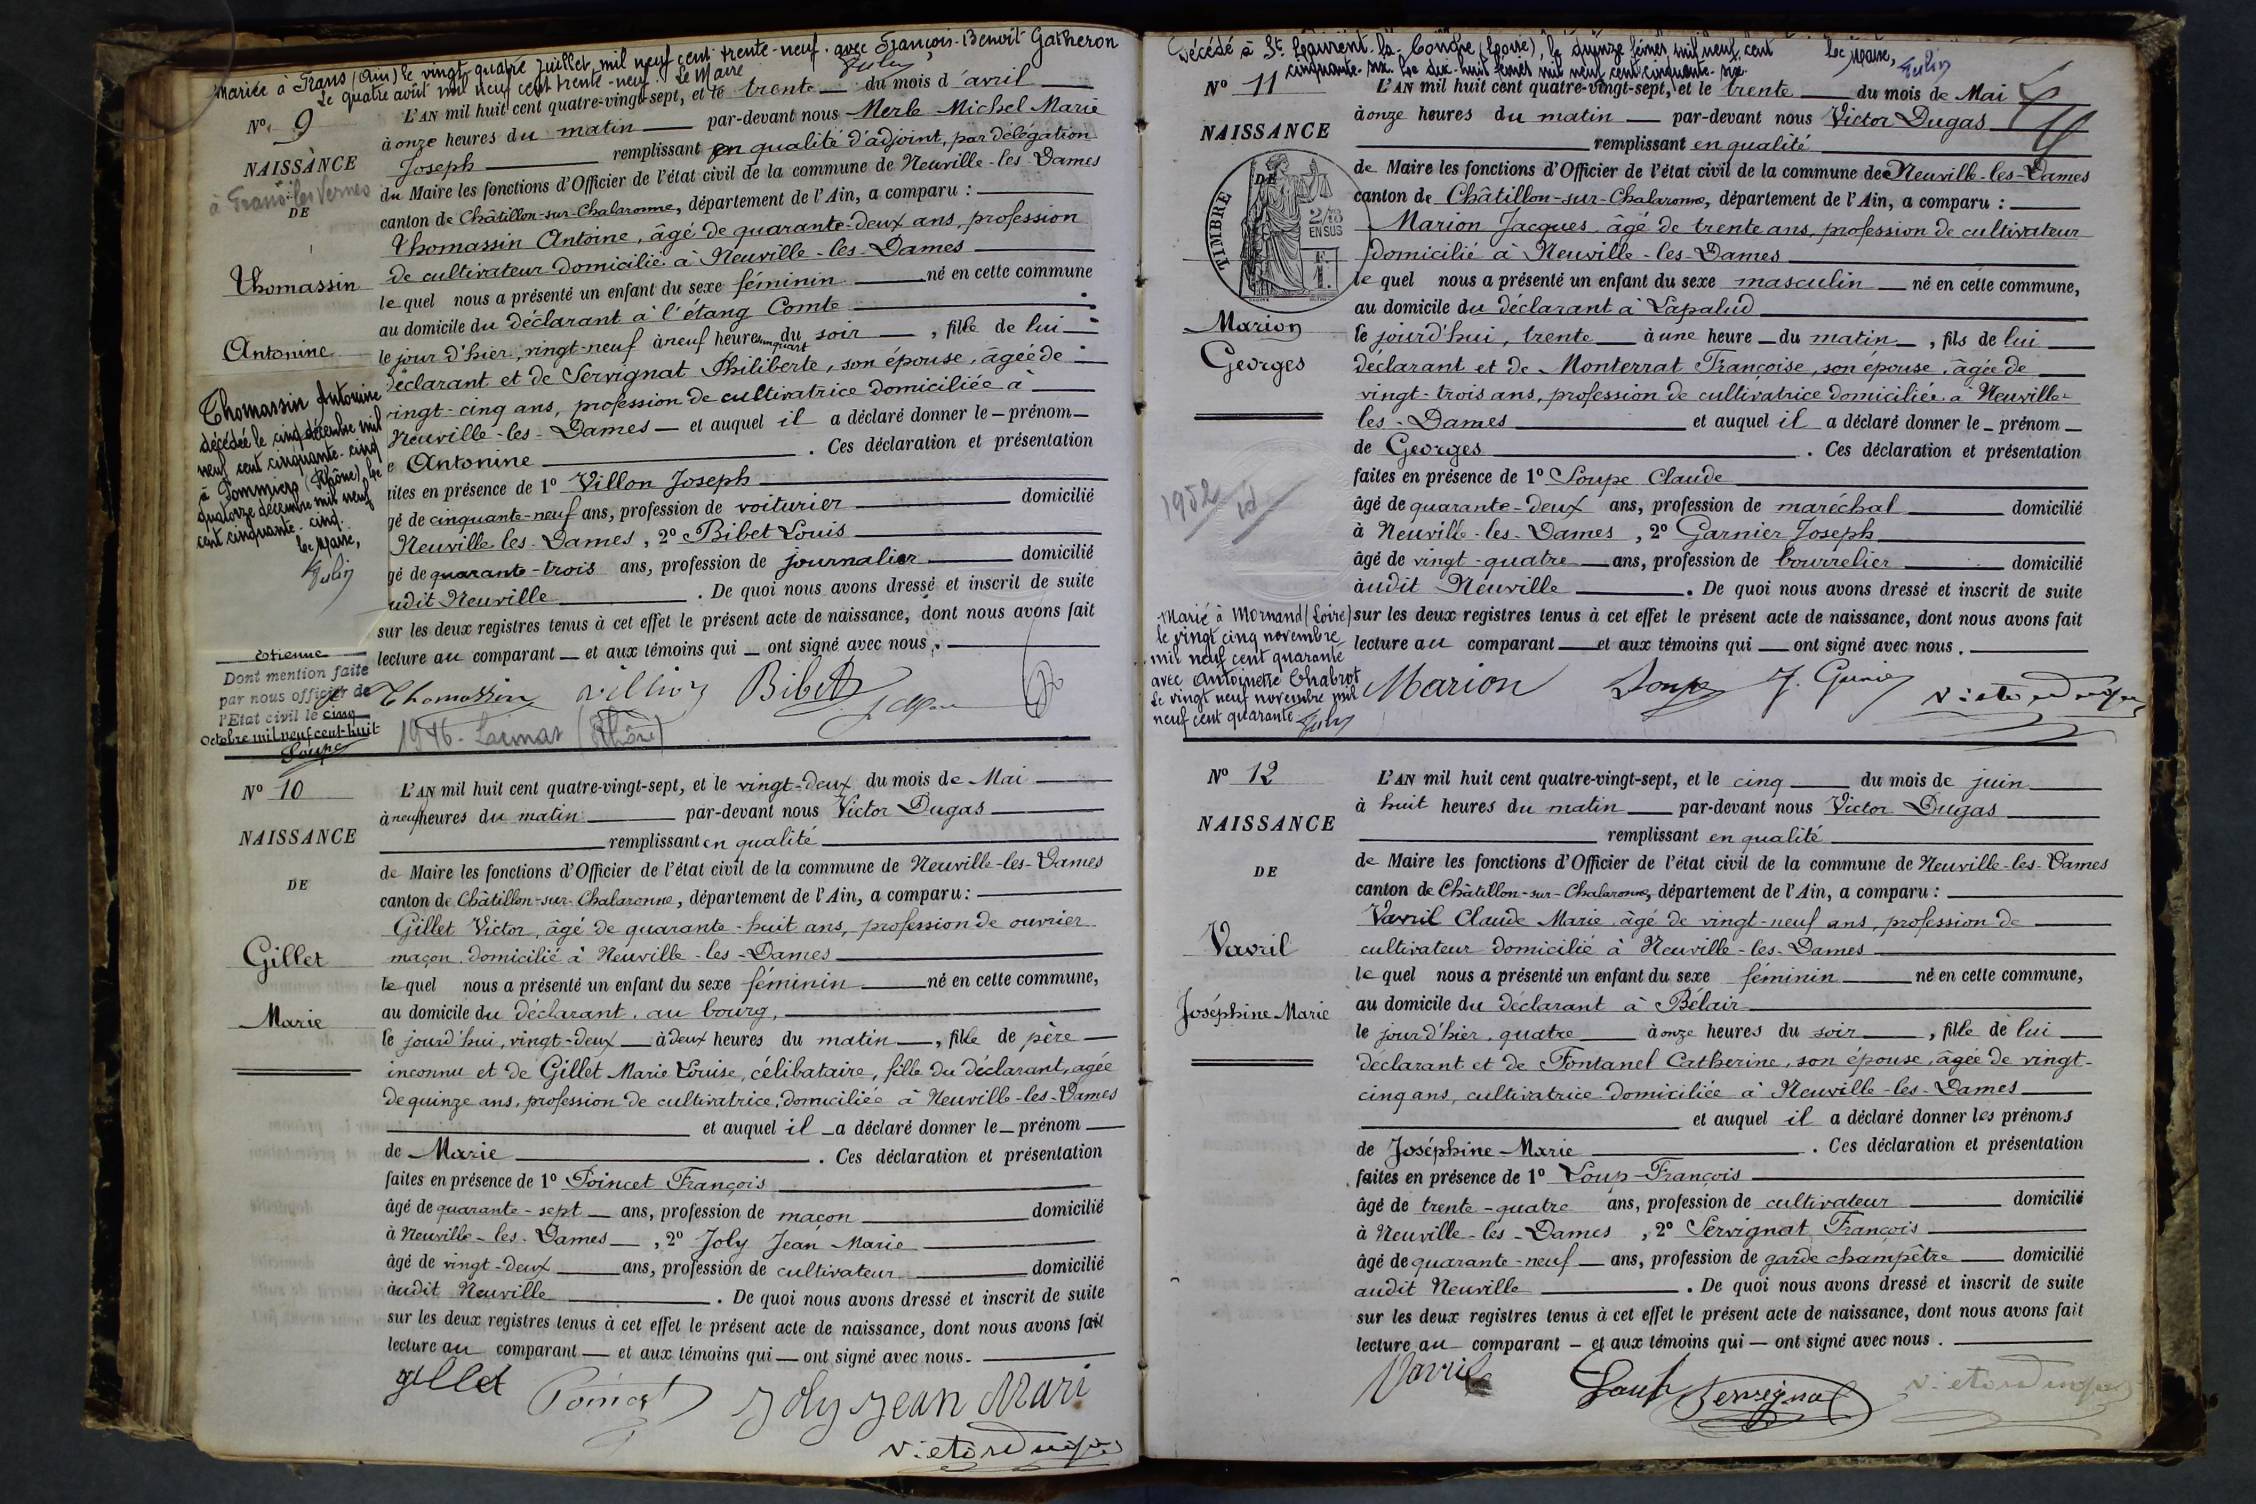 Mariée à Frans (Ain) le vingt quatre juillet mil neuf cent trente-neuf avec François-Benoit Gatheron
le quatre août mil neuf cent trente-neuf Le Maire
Julin
N° 9
NAISSANCE
DE
Thomassin
Antonine
Thomassin Antonine
décédée le cinq décembre mil
neuf cent cinquante-cinq
à Pommiers (Rhône) le
quatorze décembre mil neuf
cent cinquante-cinq.
Le Maire,
Julin
Dont mention faite
par nous officier de
l'Etat civil le cinq
Octobre mil neuf cent huit
Loupe
L'AN mil huit cent quatre-vingt-sept, et le trente du mois d'avril
à onze heures du matin par-devant nous Merle Michel Marie
Joseph remplissant en qualité d'adjoint, par délégation
du Maire les fonctions d'Officier de l'état civil de la commune de Neuville-les-Dames
canton de Châtillon-sur-Chalaronne, département de l'Ain, a comparu :
Thomassin Antoine, âgé de quarante-deux ans, profession
de cultivateur domicilié à Neuville-les-Dames
lequel nous a présenté un enfant du sexe féminin né en cette commune
au domicile du déclarant à l'étang Comte
le jour d'hier, vingt-neuf à neuf heures un quart du soir, fille de lui
déclarant et de Servignat Philiberte, son épouse, âgée de
vingt-cinq ans, profession de cultivatrice domiciliée à
Neuville-les-Dames et auquel il a déclaré donner le prénom
e Antonine. Ces déclaration et présentation
aites en présence de 1° Villon Joseph
gé de cinquante-neuf ans, profession de voiturier domicilié
Neuville les Dames, 2° Bibet Louis
gé de quarante-trois ans, profession de journalier domicilié
udit Neuville. De quoi nous avons dressé et inscrit de suite
sur les deux registres tenus à cet effet le présent acte de naissance, dont nous avons fait
lecture au comparant et aux témoins qui ont signé avec nous.
Thomassin Villion Bibet
1946
(Rhône)
N° 10
NAISSANCE
DE
Gillet
Marie
L'AN mil huit cent quatre-vingt-sept, et le vingt-deux du mois de Mai
à neuf heures du matin par-devant nous Victor Dugas
remplissant en qualité
de Maire les fonctions d'Officier de l'état civil de la commune de Neuville-les-Dames
canton de Châtillon-sur-Chalaronne, département de l'Ain, a comparu :
Gillet Victor, âgé de quarante-huit ans, profession de ouvrier
maçon domicilié à Neuville-les-Dames
lequel nous a présenté un enfant du sexe féminin né en cette commune,
au domicile du déclarant, au bourg,
le jourd'hui, vingt-deux à deux heures du matin, fille de père
inconnu et de Gillet Marie Louise, célibataire, fille du déclarant, agée
de quinze ans, profession de cultivatrice, domiciliée à Neuville-les-Dames
et auquel il a déclaré donner le prénom
de Marie. Ces déclaration et présentation
faites en présence de 1° Poincet François
âgé de quarante-sept ans, profession de maçon domicilié
à Neuville-les-Dames, 2° Joly Jean Marie
âgé de vingt-deux ans, profession de cultivateur domicilié
audit Neuville. De quoi nous avons dressé et inscrit de suite
sur les deux registres tenus à cet effet le présent acte de naissance, dont nous avons fait
lecture au comparant et aux témoins qui ont signé avec nous.
gillet Poincet Joly Jean Mari
Victor Dugas
Décédé à St Laurent-la-Conche (Loire), le quinze février mil neuf cent
cinquante-six. Le dix-huit février mil neuf cent cinquante-six.
Le Maire, Julin
N° 11
NAISSANCE
DE
TIMBRE
2/10
EN SUS
Marion
Georges
1952
Marié à Mornand (Loire)
le vingt cinq novembre
mil neuf cent quarante
avec Antoinette Chabrot
Le vingt neuf novembre mil
neuf cent quarante Julin
L'AN mil huit cent quatre-vingt-sept, et le trente du mois de Mai
à onze heures du matin par-devant nous Victor Dugas
remplissant en qualité
de Maire les fonctions d'Officier de l'état civil de la commune de Neuville-les-Dames
canton de Châtillon-sur-Chalaronne, département de l'Ain, a comparu :
Marion Jacques âgé de trente ans, profession de cultivateur
domicilié à Neuville-les-Dames
lequel nous a présenté un enfant du sexe masculin né en cette commune,
au domicile du déclarant à Lapalud
le jourd'hui, trente à une heure du matin, fils de lui
déclarant et de Monterrat Françoise, son épouse, âgée de
vingt-trois ans, profession de cultivatrice domiciliée à Neuville-
les-Dames et auquel il a déclaré donner le prénom
de Georges. Ces déclaration et présentation
faites en présence de 1° Loupe Claude
âgé de quarante-deux ans, profession de maréchal domicilié
à Neuville-les-Dames, 2° Garnier Joseph
âgé de vingt-quatre ans, profession de bourrelier domicilié
àudit Neuville. De quoi nous avons dressé et inscrit de suite
sur les deux registres tenus à cet effet le présent acte de naissance, dont nous avons fait
lecture au comparant et aux témoins qui ont signé avec nous.
Marion Loupe Victor Dugas
N° 12
NAISSANCE
DE
Vavril
Joséphine Marie
L'AN mil huit cent quatre-vingt-sept, et le cinq du mois de juin
à huit heures du matin par-devant nous Victor Dugas
remplissant en qualité
de Maire les fonctions d'Officier de l'état civil de la commune de Neuville-les-Dames
canton de Châtillon-sur-Chalaronne, département de l'Ain, a comparu :
Vavril Claude Marie, âgé de vingt-neuf ans, profession de
cultivateur domicilié à Neuville-les-Dames
lequel nous a présenté un enfant du sexe féminin né en cette commune,
au domicile du déclarant à Bélair
le jour d'hier, quatre à onze heures du soir, fille de lui
déclarant et de Fontanel Catherine, son épouse, âgée de vingt-
cinq ans, cultivatrice domiciliée à Neuville-les-Dames
et auquel il a déclaré donner les prénoms
de Joséphine-Marie. Ces déclaration et présentation
faites en présence de 1° Loup François
âgé de trente-quatre ans, profession de cultivateur domicilié
à Neuville-les-Dames, 2° Servignat François
âgé de quarante-neuf ans, profession de garde champêtre domicilié
audit Neuville. De quoi nous avons dressé et inscrit de suite
sur les deux registres tenus à cet effet le présent acte de naissance, dont nous avons fait
lecture au comparant et aux témoins qui ont signé avec nous.
Vavril Loup Servignat Victor Dugas